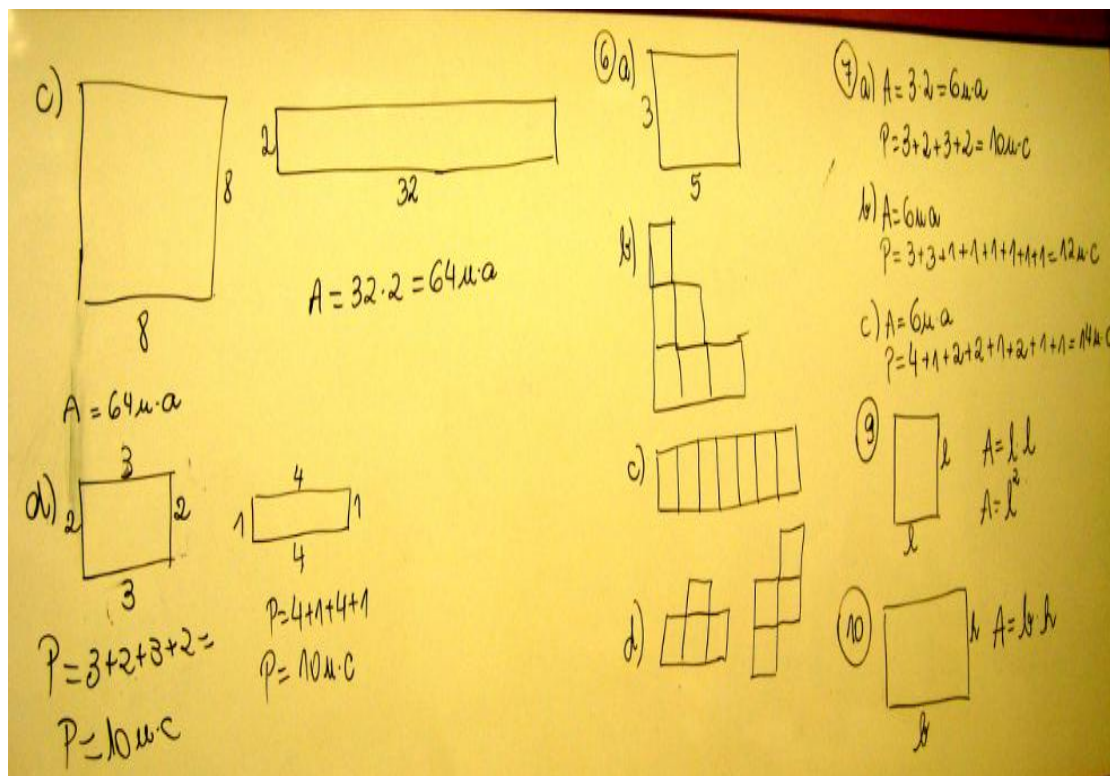 c)
8
8
A = 64u·a
2
32
A = 32·2 = 64u·a
d)
3
2
2
3
P = 3+2+3+2 =
P = 10u·c
4
1
1
4
P = 4+1+4+1
P = 10u·c
6 a)
3
5
b)
c)
d)
7 a) A = 3·2 = 6u·a
P = 3+2+3+2 = 10u·c
b) A = 6u·a
P = 3+3+1+1+1+1+1+1 = 12u·c
c) A = 6u·a
P = 4+1+2+2+1+2+1+1 = 14u·c
9
l
l
A = l·l
A = l²
10
h
b
A = b·h